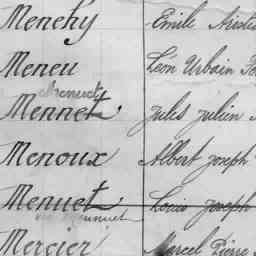 Menehy Emile
Meneu Léon Urbain
Menuet
Mennet Jules Julien
Menoux Albert Joseph
Menuet Louis Joseph
Mercier Marcel Pierre